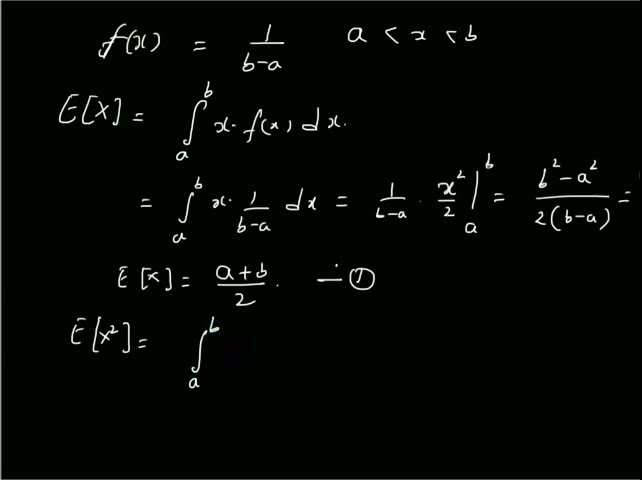 f(x) = 1/(b-a) a < x < b
E[X] = ∫_a^b x· f(x) dx.
= ∫_a^b x· 1/(b-a) dx = 1/(b-a) · x²/2 |_a^b = (b²-a²)/(2(b-a)) =
E[X] = (a+b)/2 . — ①
E[X²] = ∫_a^b